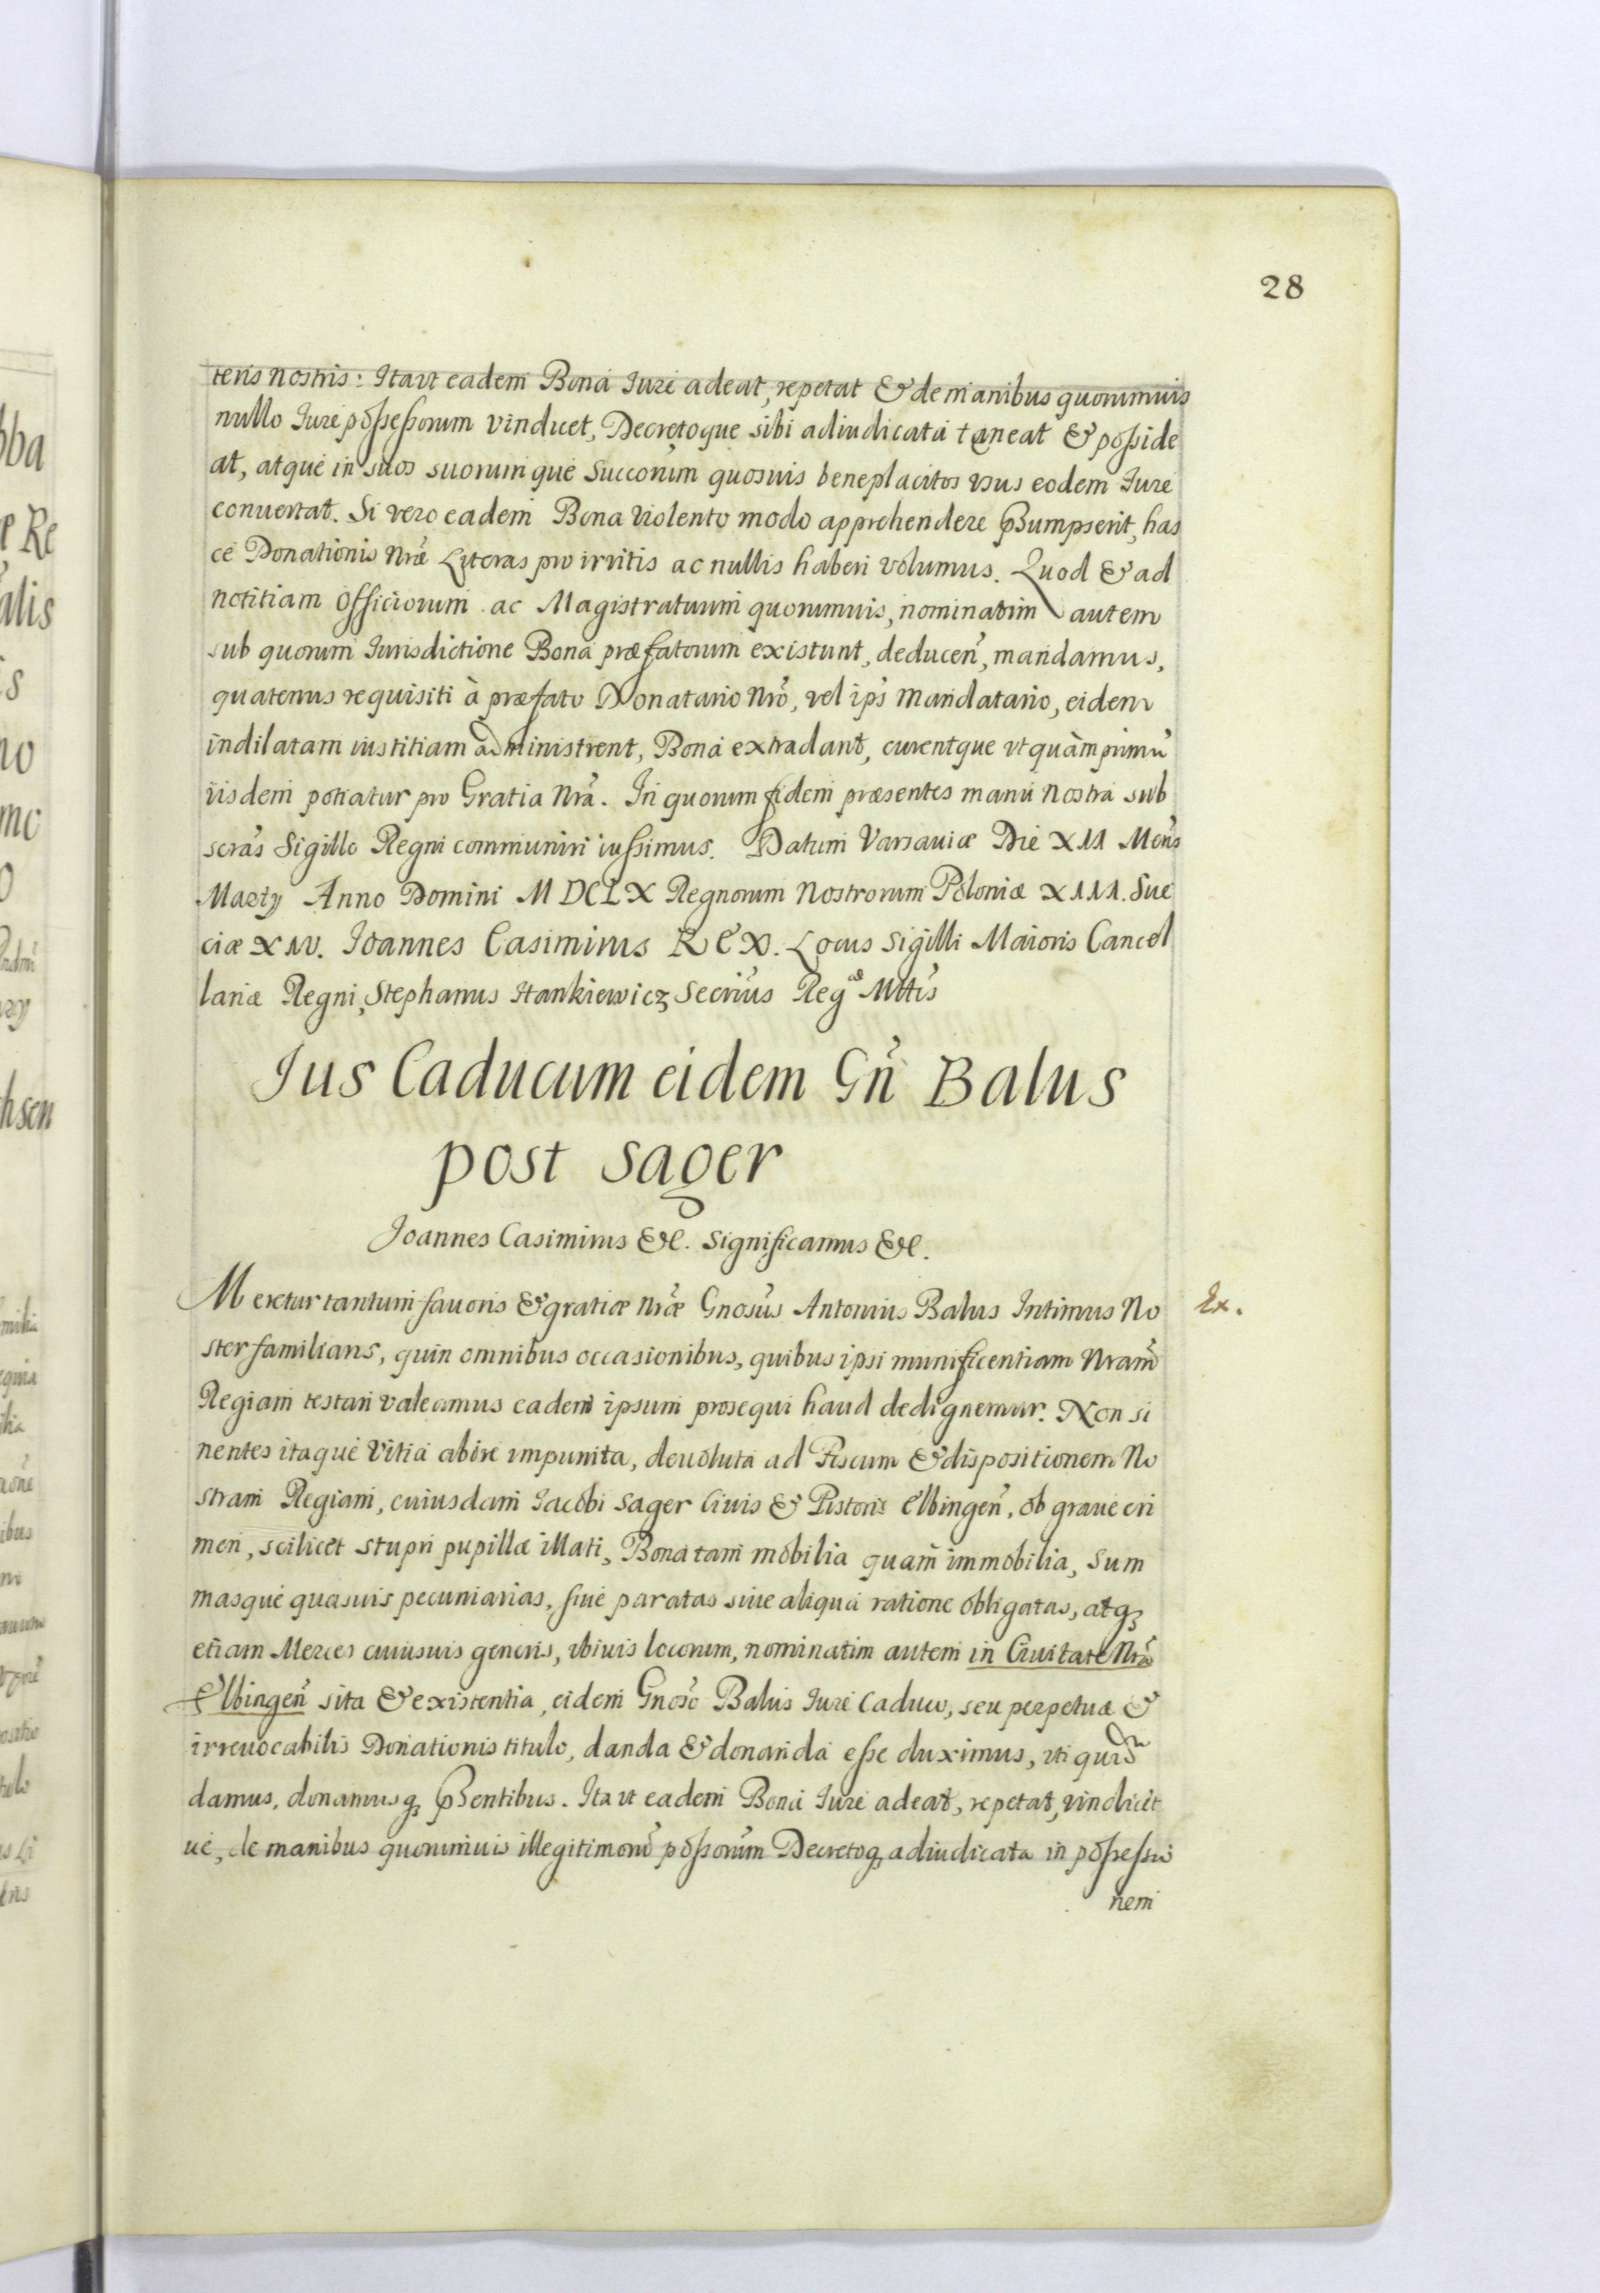 28
teris nostris: Ita ut eadem Bona Iure adeat, repetat & de manibus quorumvis
nullo Iure possessorum vindicet, Decretoque sibi adiudicata teneat & posside
at, atque in suos suorumque Succorum quosuis beneplacitos usus eodem Iure
conuertat. Si vero eadem Bona violento modo apprehendere Psumpserit, has
ce Donationis Nræ Literas pro irritis ac nullis haberi volumus. Quod & ad
notitiam officiorum ac Magistratuum quorumuis, nominatim autem
sub quorum Iurisdictione Bona præfatorum existunt, deducen, mandamus,
quatenus requisiti à præfato Donatario Nro, vel ips mandatario, eidem
indilatam iustitiam administrent, Bona extradant, curentque vt quàmprimu
iisdem potiatur pro Gratia Nra. In quorum fidem præsentes manu nostra sub
scras Sigillo Regni communiri iussimus. Datum Varsauiæ Die XII Mens
Marty Anno Domini MDCLX Regnorum Nostrorum Poloniæ XIII. Sue
ciæ XIV. Ioannes Casimirus REX. Locus Sigilli Maioris Cancel
lariæ Regni, Stephanus Hankiewicz Secrius Regæ Mttis
Ius Caducum eidem Gn Balus
post Sager
Ioannes Casimirus &c. Significamus &c.
Meretur tantum fauoris & gratiæ Nræ Gnosus Antonius Balus Intimus No
Ex.
ster familiaris, quin omnibus occasionibus, quibus ipsi munificentiam Nram
Regiam testari valeamus eadem ipsum prosequi haud dedignemur. Non si
nentes itaque vitia abire impunita, deuoluta ad Fiscum & dispositionem No
stram Regiam, cuiusdam Iacobi Sager Ciuis & Pistoris Elbingen, ob graue cri
men, scilicet stupri pupillæ illati, Bona tam mobilia quam immobilia, Sum
masque quasuis pecuniarias, siue paratas siue aliqua ratione obligatas, atq
etiam Merces cuiusuis generis, vbiuis locorum, nominatim autem in Ciuitate Nra
Elbingen sita & existentia, eidem Gnoso Balus Iure Caduco, seu perpetuæ &
irreuocabilis Donationis titulo, danda & donanda esse duximus, vti quidem
damus, donamusq Psentibus. Ita ut eadem Bona Iure adeat, repetat, vindicet
ue, de manibus quorumuis illegitimoru possorum Decretoq adiudicata in possessio
nem